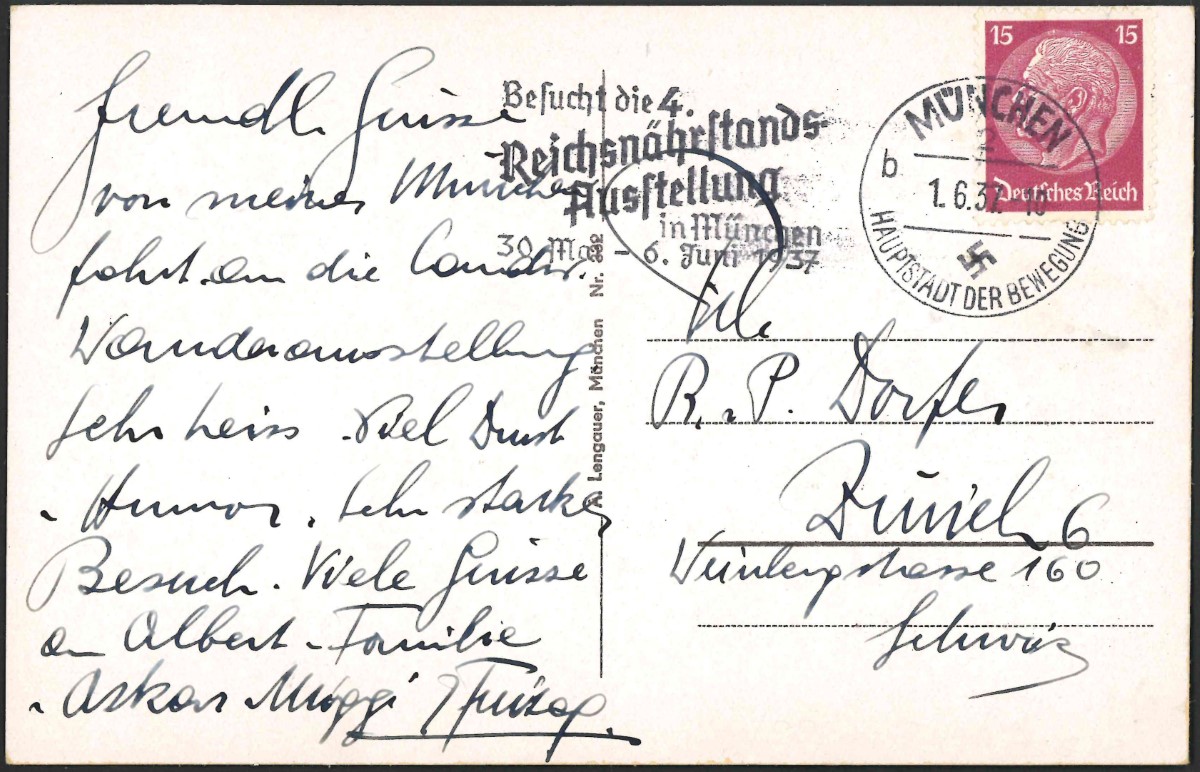 Freundl. Grüsse
von meiner Münchner
fahrt an die Landw.
Wanderausstellung
Sehr heiss. Viel Durst
Humor. Sehr starker
Besuch. Viele Grüsse
an Albert Familie
Oskar
Besucht die 4.
Reichsnährstands-
Ausstellung
in München
30. Mai - 6. Juni 1937
A. Lengauer, München Nr. 332
15 15
Deutsches Reich
MÜNCHEN
2
b
1.6.37.-10
HAUPTSTADT DER BEWEGUNG
R. P. Dorfer
Zürich 6
Weinbergstrasse 160
Schweiz